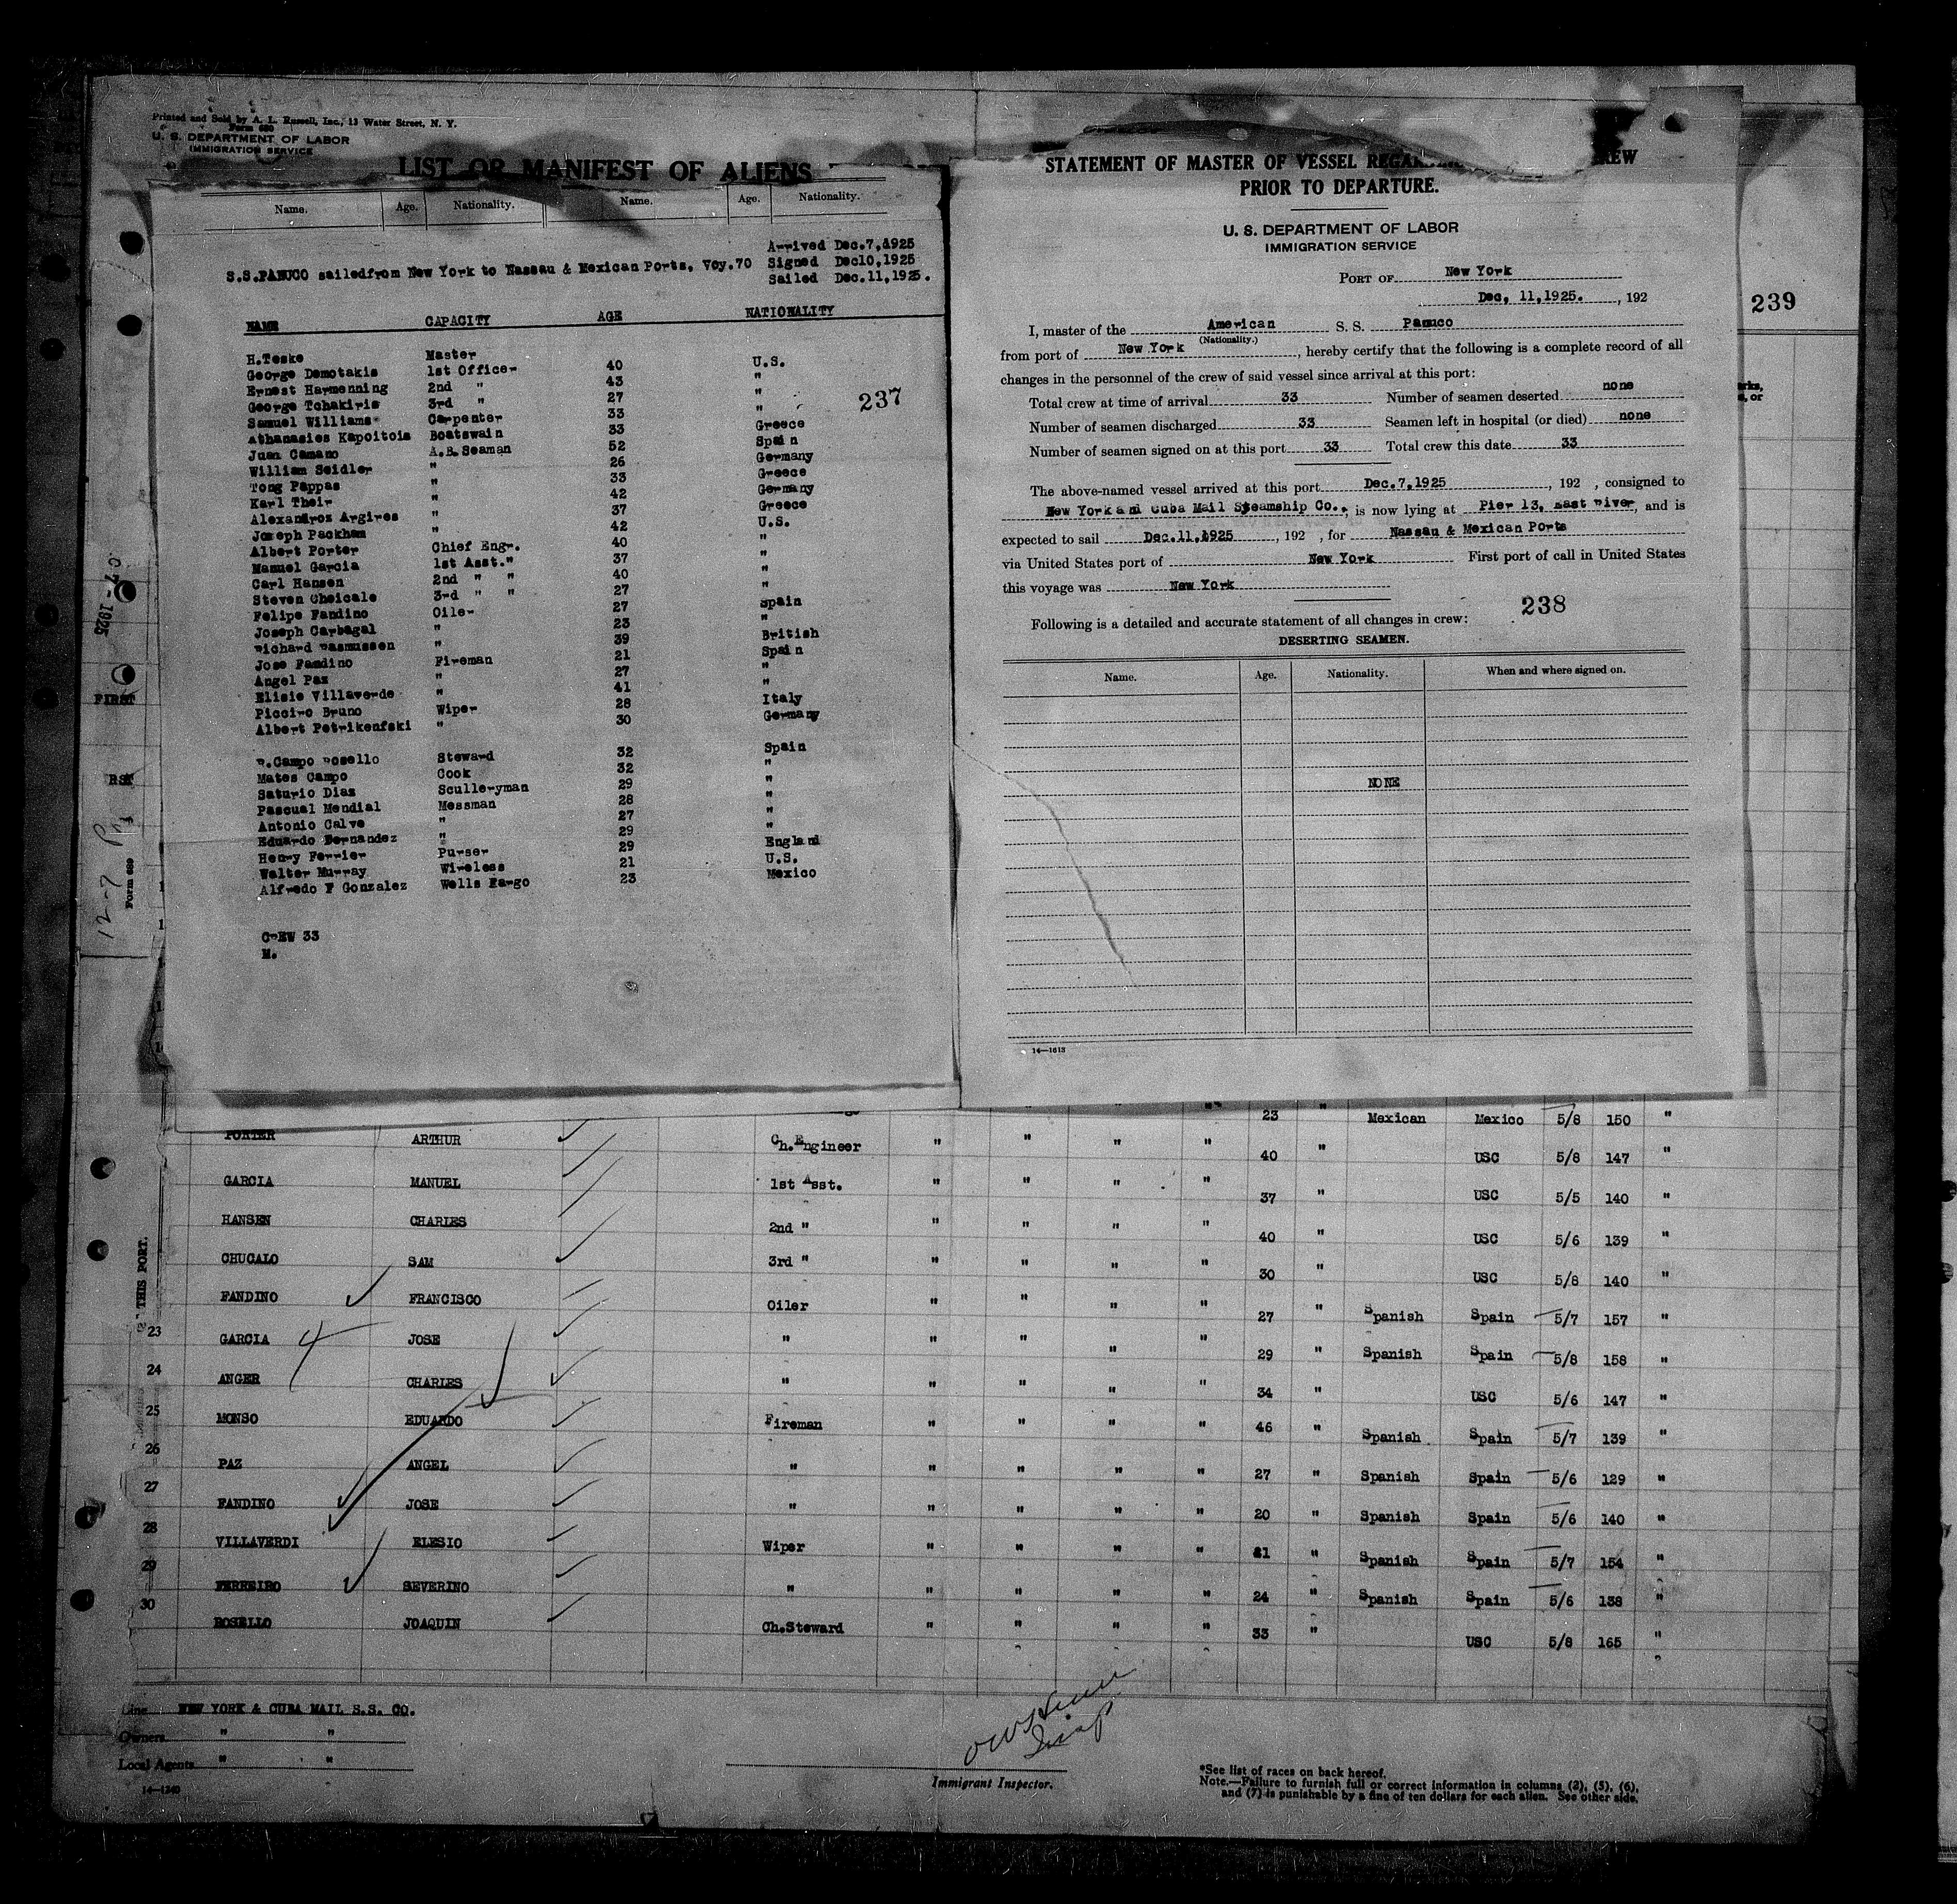 Printed and Sold by A. L. Russell, Inc., 13 Water Street, N. Y.
Form 680
U. S. DEPARTMENT OF LABOR
IMMIGRATION SERVICE
LIST OR MANIFEST OF ALIENS
Name. Age. Nationality. Name. Age. Nationality.
Arrived Dec.7,1925
S.S.PANUCO sailedfrom New York to Nassau & Mexican Ports, Voy.70 Signed Dec10,1925
Sailed Dec.11,1925.
NAME CAPACITY AGE NATIONALITY
H.Teske Master
George Demotakis 1st Officer 40 U.S.
Ernest Harmenning 2nd " 43 "
George Tchakiris 3rd " 27 "
Samuel Williams Carpenter 33 "
Athanasies Kapoitois Boatswain 33 Greece
Juan Camano A.B.Seaman 52 Spain
William Seidler " 26 Germany
Tong Pappas " 33 Greece
Karl Their " 42 Germany
Alexandros Argires " 37 Greece
Joseph Packham " 42 U.S.
Albert Porter Chief Engr. 40 "
Manuel Garcia 1st Asst." 37 "
Carl Hansen 2nd " " 40 "
Steven Choicale 3rd " " 27 "
Felipe Fandino Oiler 27 Spain
Joseph Carbagal " 23 "
Richard Rasmussen " 39 British
Jose Fandino Fireman 21 Spain
Angel Paz " 27 "
Elisie Villaverde " 41 "
Picciro Bruno Wiper 28 Italy
Albert Petrikenfski " 30 Germany
R.Campo Rosello Steward 32 Spain
Mates Campo Cook 32 "
Saturio Dias Sculleryman 29 "
Pascual Mendial Messman 28 "
Antonio Calve " 27 "
Eduardo Fernandez " 29 "
Henry Ferrier Purser 29 England
Walter Murray Wireless 21 U.S.
Alfredo F Gonzalez Wells Fargo 23 Mexico
237
CREW 33
M.
STATEMENT OF MASTER OF VESSEL REGA CREW
PRIOR TO DEPARTURE.
U. S. DEPARTMENT OF LABOR
IMMIGRATION SERVICE
PORT OF New York
Dec, 11,1925. , 192
I, master of the American S. S. Panuco
(Nationality.)
from port of New York , hereby certify that the following is a complete record of all
changes in the personnel of the crew of said vessel since arrival at this port:
Total crew at time of arrival 33 Number of seamen deserted none
Number of seamen discharged 33 Seamen left in hospital (or died) none
Number of seamen signed on at this port 33 Total crew this date 33
The above-named vessel arrived at this port Dec.7,1925 , 192 , consigned to
New York and Cuba Mail Steamship Co., is now lying at Pier 13, East River, and is
expected to sail Dec.11,1925 , 192 , for Nassau & Mexican Ports
via United States port of New York First port of call in United States
this voyage was New York
238
Following is a detailed and accurate statement of all changes in crew:
DESERTING SEAMEN.
Name. Age. Nationality. When and where signed on.
NONE
14—1613
239
07-1925
FIRST
12-7
Form 689
THIS PORT.
23 " Mexican Mexico 5/8 150 "
PORTER ARTHUR Ch.Engineer " " " " 40 " USC 5/8 147 "
GARCIA MANUEL 1st Asst. " " " " 37 " USC 5/5 140 "
HANSEN CHARLES 2nd " " " " " 40 " USC 5/6 139 "
CHUCALO SAM 3rd " " " " " 30 " USC 5/8 140 "
FANDINO FRANCISCO Oiler " " " " 27 " Spanish Spain 5/7 157 "
23 GARCIA JOSE " " " " " 29 " Spanish Spain 5/8 158 "
24 ANGER CHARLES " " " " " 34 " USC 5/6 147 "
25 MONSO EDUARDO Fireman " " " " 46 " Spanish Spain 5/7 139 "
26 PAZ ANGEL " " " " " 27 " Spanish Spain 5/6 129 "
27 FANDINO JOSE " " " " " 20 " Spanish Spain 5/6 140 "
28 VILLAVERDI ELESIO Wiper " " " " " Spanish Spain 5/7 154 "
29 FERREIRO SEVERINO " " " " " 24 " Spanish Spain 5/6 138 "
30 ROSELLO JOAQUIN Ch.Steward " " " " 33 " USC 5/8 165 "
Line NEW YORK & CUBA MAIL S.S. CO.
Owners " "
Local Agents " "
14—1240
Immigrant Inspector.
*See list of races on back hereof.
Note.—Failure to furnish full or correct information in columns (2), (5), (6),
and (7) is punishable by a fine of ten dollars for each alien. See other side.